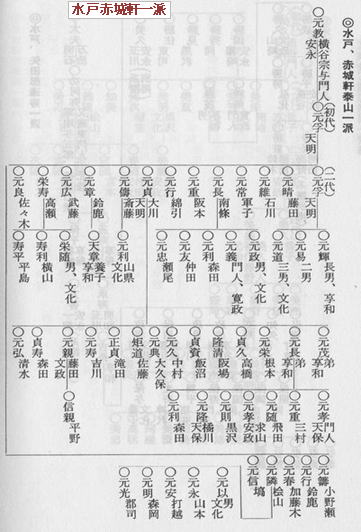 水戸赤城軒一派
◎水戸、赤城軒泰山一派
○元教 横谷宗与門人 安永
(初代)
○元孚 天明
(二代)
○元孚 天明
○元晴 藤田
○元維 石川
○元常 軍子
○元長 南條
○元重 阪本
○元行 綿引
○元貞 大川
○元儔 斎藤 天明
○元章 鈴鹿
○元広 武藤
○栄寿 高瀬
○元良 佐々木
○元輝 長男、享和
○元易 二男
○元道 三男、文化
○元政 男、文化
○元義 門人、寛政
○元利 森田
○元友 仲田
○元忠 瀬尾
○元利 山県 文化
○天章 養子 享和
○栄随 男、文化
○寿利 横山
○寿平 平島
○元茂 弟 享和
○元長 弟 享和
○元栄 根本
○貞久 高橋
○隆清 阪場
○貞資 飯沼
○元久 中村
○元典 大久保
○矩道 佐藤
○正貞 滝田
○元寿 吉川
○元親 藤田 文政
○貞寿 森田
○元弘 清水
○元孝 門人 天保
○元重 三村
○元随 飛田
○元孝 求山 安政
○元則 黒沢
○元隆 橘川 天保
○元利 森田
○信親 平野
○元籌 小野瀬
○元行 鈴鹿
○元春 加藤木
○元隣 桧山
○元信 塙
○元以 男 文化
○元永 山本
○元安 打越
○元明 森岡
○元光 郡司